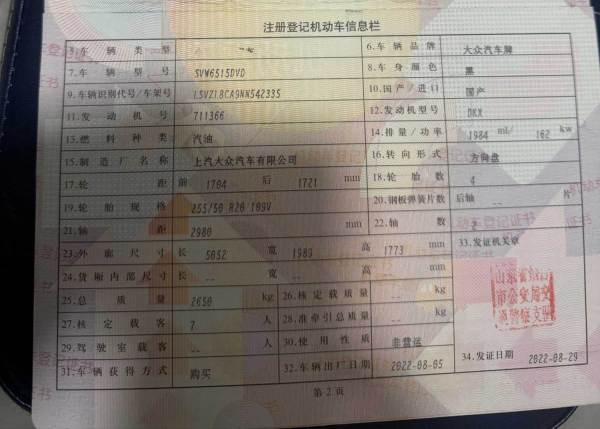 注册登记机动车信息栏
5.车辆类型 6.车辆品牌 大众汽车牌
7.车辆型号 SVW6515DVD 8.车身颜色 黑
9.车辆识别代号/车架号 LSVZL8CA9NN542335 10.国产/进口 国产
11.发动机号 711366 12.发动机型号 DKX
13.燃料种类 汽油 14.排量/功率 1984 ml/ 162 kw
15.制造厂名称 上汽大众汽车有限公司 16.转向形式 方向盘
17.轮距 前 1704 后 1721 mm 18.轮胎数 4
19.轮胎规格 255/50 R20 109V 20.钢板弹簧片数 后轴 -- 片
21.轴距 2980 mm 22.轴数 2
23.外廓尺寸 长 5052 宽 1989 高 1773 mm 33.发证机关章
24.货厢内部尺寸 长 -- 宽 -- 高 -- mm
25.总质量 2650 kg 26.核定载质量 -- kg
27.核定载客 7 人 28.准牵引总质量 -- kg
29.驾驶室载客 -- 人 30.使用性质 非营运
31.车辆获得方式 购买 32.车辆出厂日期 2022-08-05 34.发证日期 2022-08-29
第2页